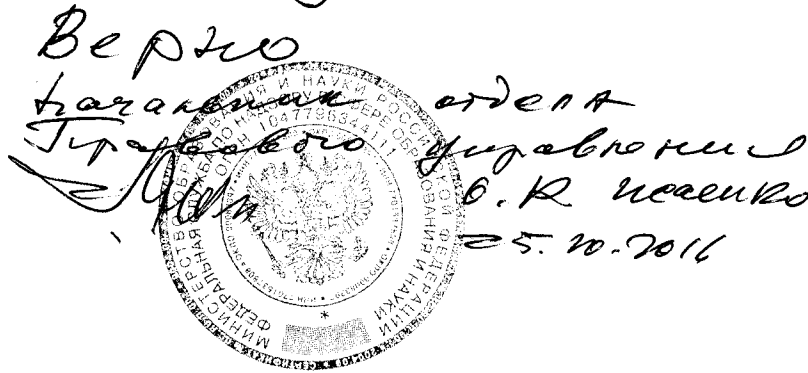 Верно
Начальник отдела
Правового управления
25.10.2016
МИНИСТЕРСТВО ОБРАЗОВАНИЯ И НАУКИ РОССИЙСКОЙ ФЕДЕРАЦИИ
ФЕДЕРАЛЬНАЯ СЛУЖБА ПО НАДЗОРУ В СФЕРЕ ОБРАЗОВАНИЯ И НАУКИ
ОГРН 1047796344111